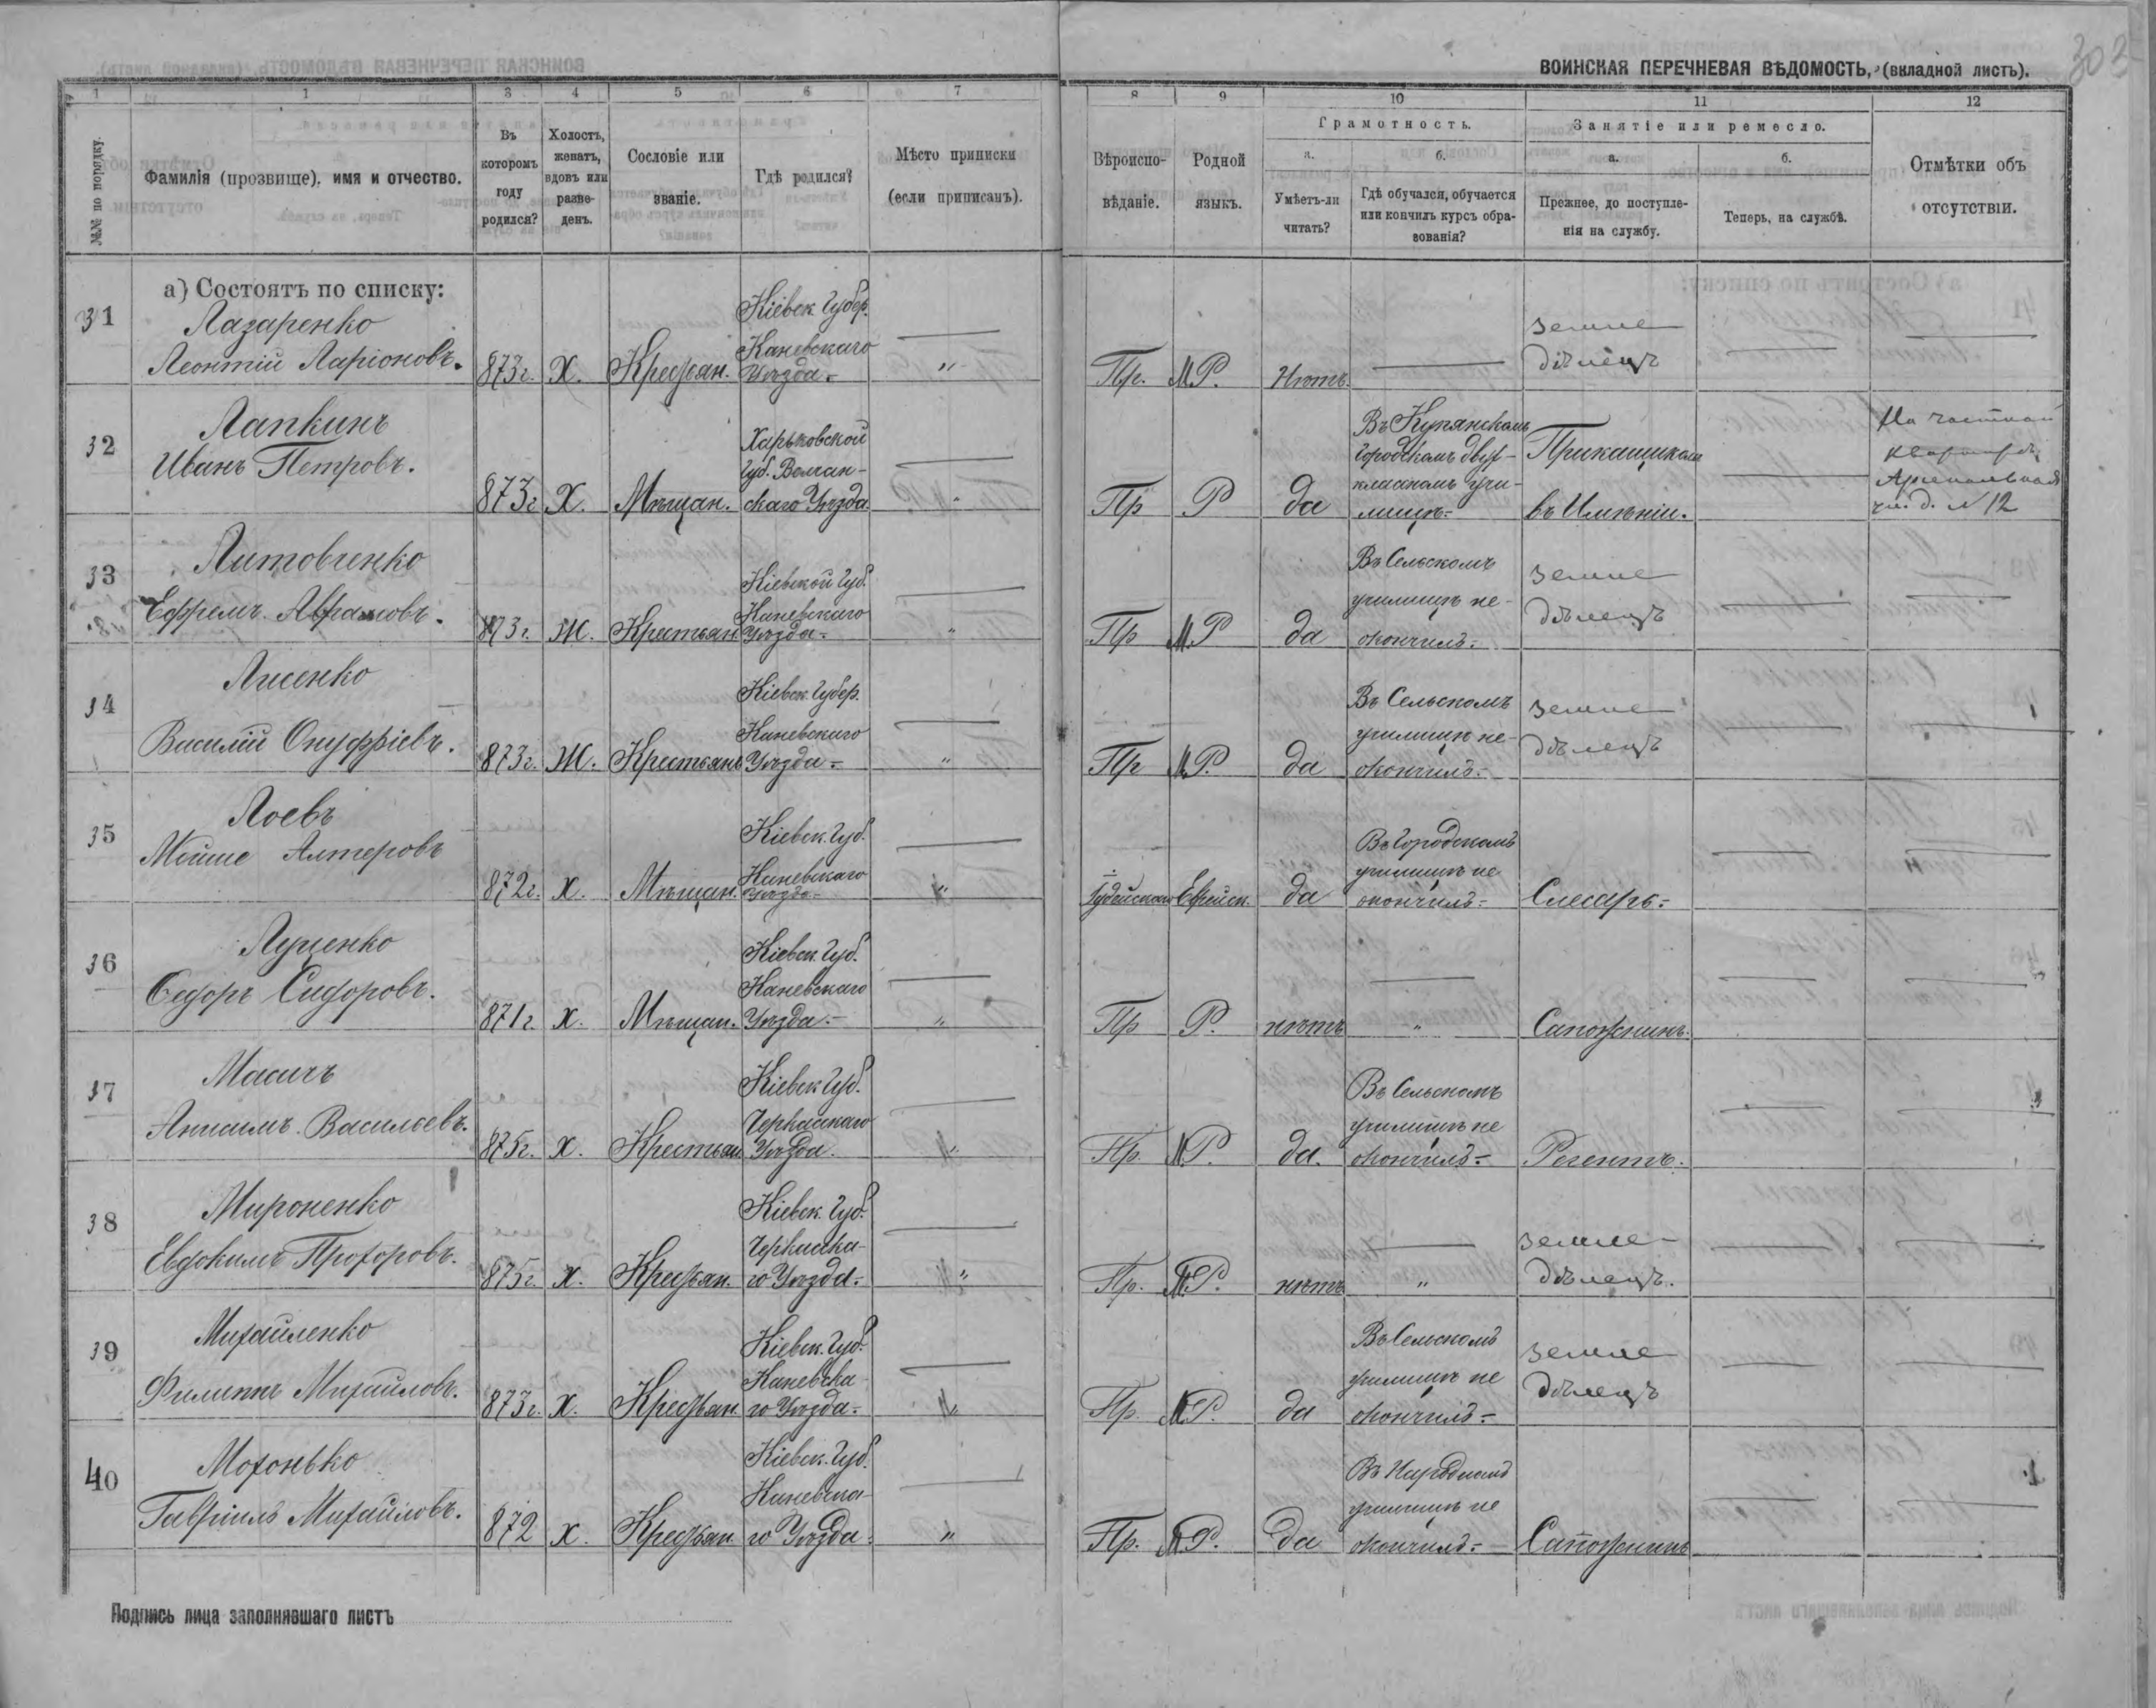 ВОИНСКАЯ ПЕРЕЧНЕВАЯ ВѢДОМОСТЬ, (вкладной листъ).
303
1 1 3 4 5 6 7 8 9 10 11 12
№№ по порядку.
Фамилія (прозвище), имя и отчество.
Въ которомъ году родился?
Холостъ, женатъ, вдовъ или разведенъ.
Сословіе или званіе.
Гдѣ родился?
Мѣсто приписки (если приписанъ).
Вѣроисповѣданіе.
Родной языкъ.
Грамотность.
а. Умѣетъ-ли читать?
б. Гдѣ обучался, обучается или кончилъ курсъ образованія?
Занятіе или ремесло.
а. Прежнее, до поступленія на службу.
б. Теперь, на службѣ.
Отмѣтки объ отсутствіи.
а) Состоятъ по списку:
31 Лазаренко
Леонтій Ларіоновъ. 873г. Х. Крестьян. Кіевск. Губер. Каневскаго Уѣзда.- " Пр. М.Р. Нѣтъ. земледѣлецъ
32 Лапкинъ
Иванъ Петровъ. 873г Х. Мѣщан. Харьковской Губ. Волчанскаго Уѣзда " Пр Р да Въ Купянскомъ Городскомъ двухкласномъ училищѣ.- Прикащикомъ въ Имѣніи. На частной квартирѣ, Арсенальная ул. д. № 12
33 Литовченко
Ефремъ Аврамовъ. 873г. Ж. Крестьян. Кіевской Губ. Каневскаго Уѣзда.- " Пр М.Р да Въ Сельскомъ училищѣ не-окончилъ.- земледѣлецъ
34 Лисенко
Василій Онуфріевъ. 873г. Ж. Крестьянъ Кіевск. Губер. Каневскаго Уѣзда.- " Пр М.Р. да Въ Сельскомъ училищѣ не-окончилъ.- земледѣлецъ
35 Лоевъ
Мойше Алтеровъ 872г. Х. Мѣщан. Кіевск. Губ. Каневскаго Уѣзда.- " Іудейская Еврейск. да Въ Городскомъ училищѣ не окончилъ.- Слесарь.-
36 Луценко
Ѳедоръ Сидоровъ. 871г. Х. Мѣщан. Кіевск. Губ. Каневскаго Уѣзда.- " Пр Р. нѣтъ " Сапожникъ.
37 Масичъ
Анисимъ Васильевъ. 875г. Х. Крестьян. Кіевск Губ. Черкасскаго Уѣзда. " Пр. М.Р. да. Въ Сельскомъ училищѣ не окончилъ.- Регентъ.
38 Мироненко
Евдокимъ Прохоровъ. 875г. Х. Крестьян. Кіевск. Губ. Черкасскаго Уѣзда.- " Пр. М.Р. нѣтъ " земледѣлецъ.
39 Михайленко
Филиппъ Михайловъ. 873г. Х. Крестьян. Кіевск. Губ. Каневскаго Уѣзда.- " Пр. М.Р. да Въ Сельскомъ училищѣ не окончилъ.- земледѣлецъ
40 Мохонько
Гавріилъ Михайловъ. 872 Х. Крестьян. Кіевск. Губ. Каневскаго Уѣзда. " Пр. М.Р. Да Въ Народномъ училищѣ не окончилъ.- Сапожникъ
Подпись лица заполнявшаго листъ